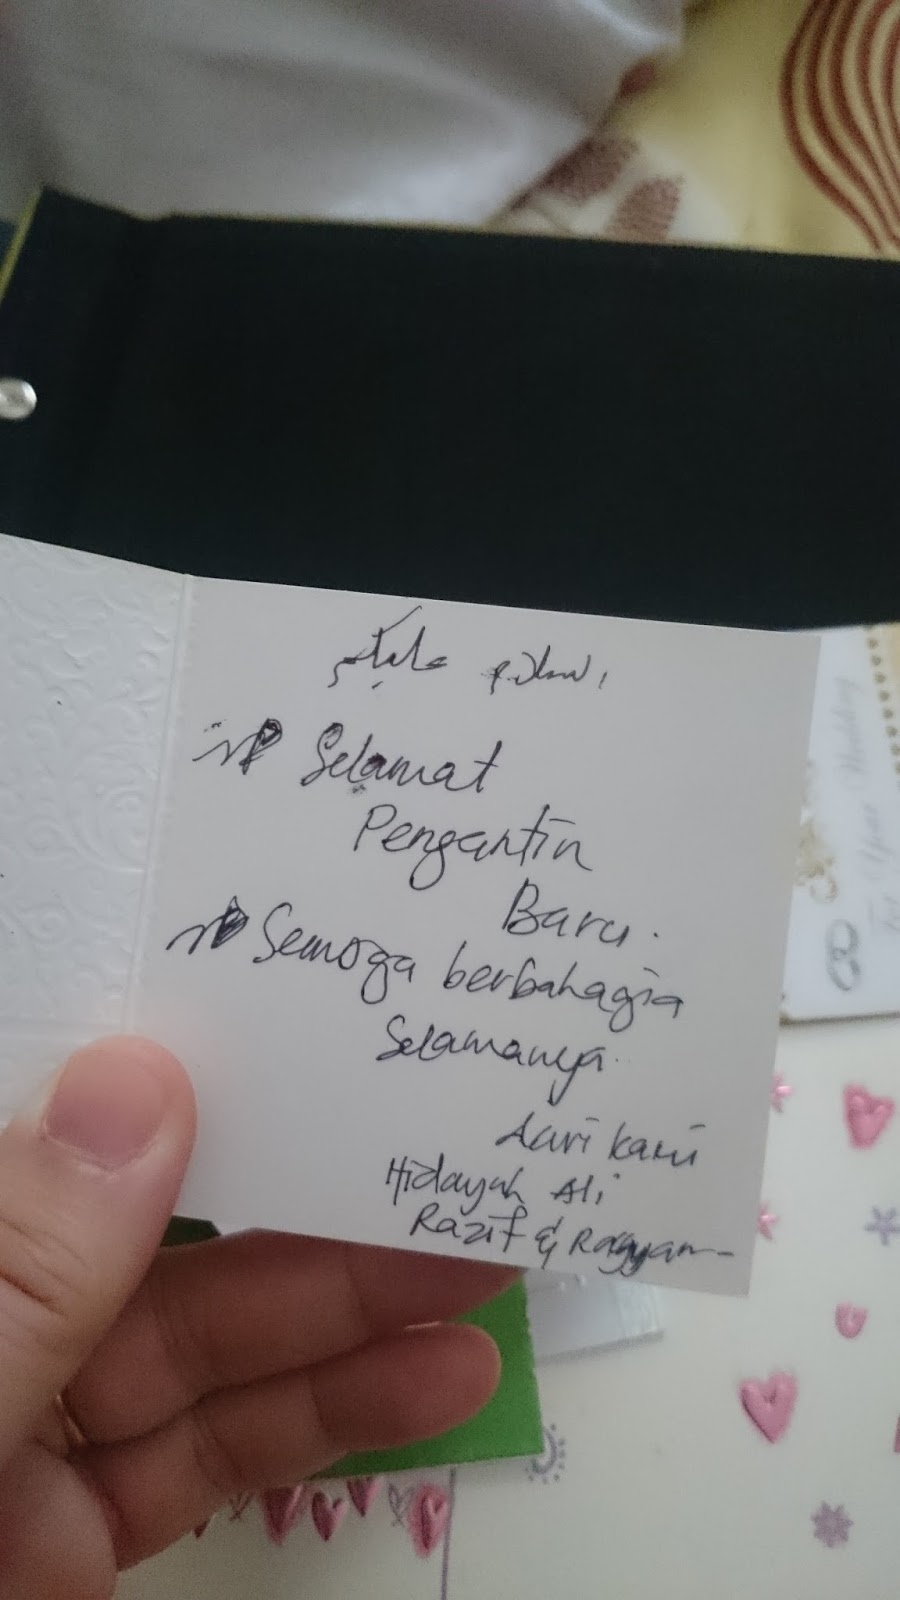 السلام عليكم
Selamat
Pengantin
Baru.
Semoga berbahagia
Selamanya.
dari kami
Hidayah Ali
Razif & Rayyan
Your Wedding